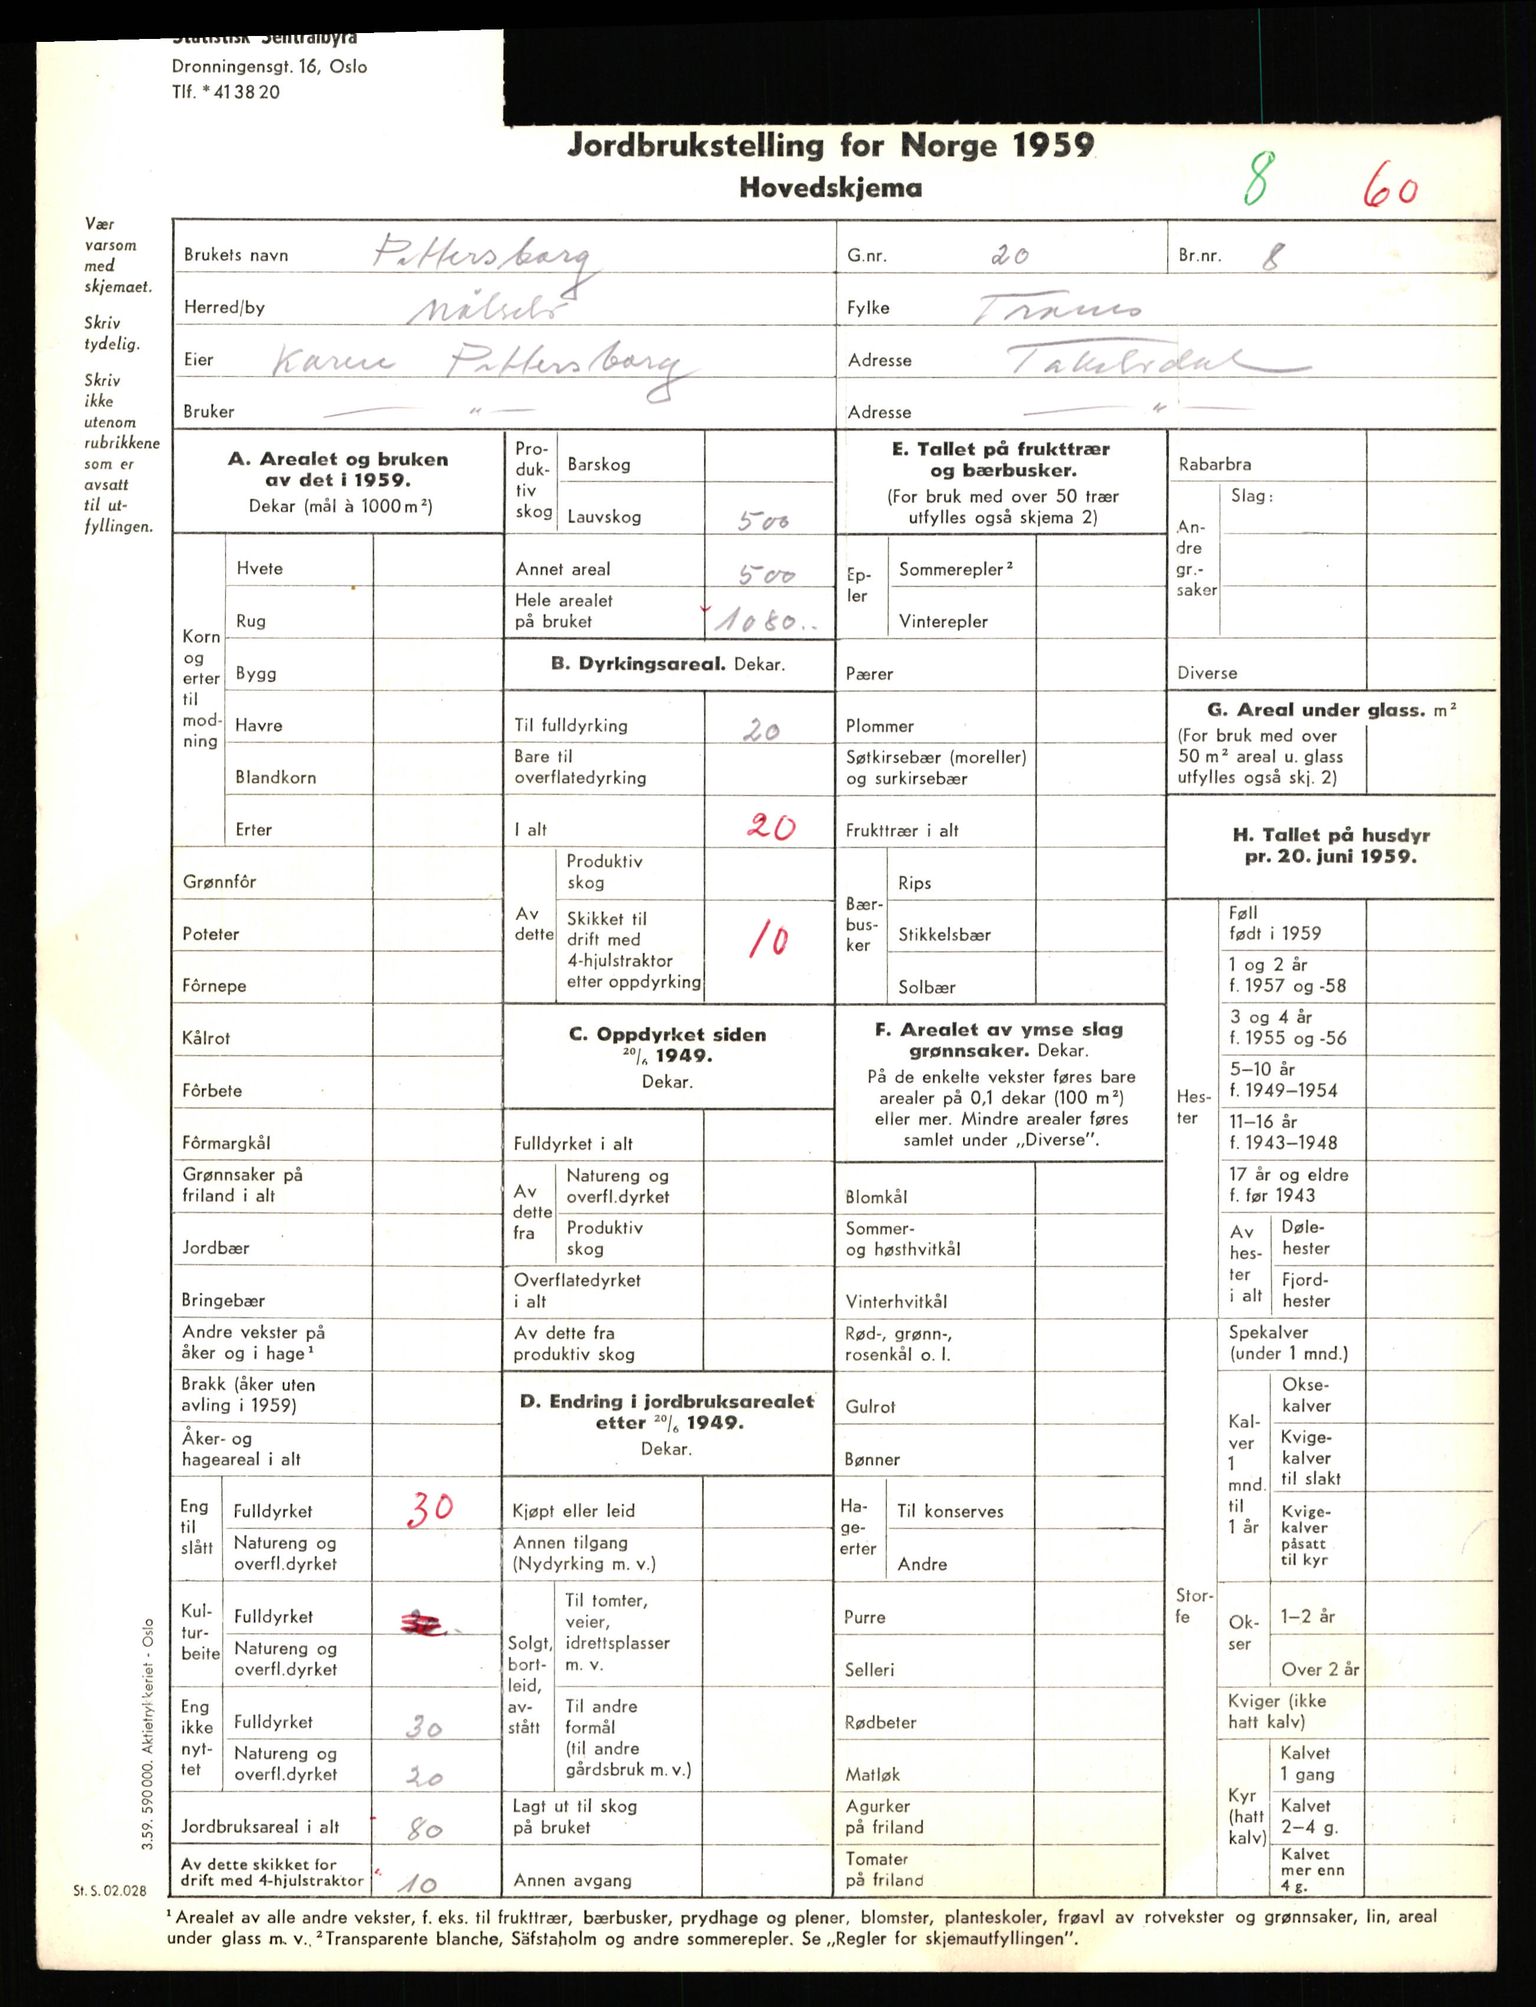 Statistisk Sentralbyrå
Dronningensgt. 16, Oslo
Tlf. *41 38 20
Jordbrukstelling for Norge 1959
Hovedskjema
8 60
Vær
varsom
med
skjemaet.
Skriv
tydelig.
Skriv
ikke
utenom
rubrikkene
som er
avsatt
til ut-
fyllingen.
Brukets navn Pettersborg G.nr. 20 Br.nr. 8
Herred/by Målselv Fylke Troms
Eier Karen Pettersborg Adresse Takelvdal
Bruker — " — Adresse — " —
A. Arealet og bruken
av det i 1959.
Dekar (mål à 1000 m²)
Korn
og
erter
til
mod-
ning
Hvete
Rug
Bygg
Havre
Blandkorn
Erter
Grønnfôr
Poteter
Fôrnepe
Kålrot
Fôrbete
Fôrmargkål
Grønnsaker på
friland i alt
Jordbær
Bringebær
Andre vekster på
åker og i hage¹
Brakk (åker uten
avling i 1959)
Åker- og
hageareal i alt
Eng
til
slått
Fulldyrket 30
Natureng og
overfl.dyrket
Kul-
tur-
beite
Fulldyrket
Natureng og
overfl.dyrket
Eng
ikke
nyt-
tet
Fulldyrket 30
Natureng og
overfl.dyrket 20
Jordbruksareal i alt 80
Av dette skikket for
drift med 4-hjulstraktor 10
Pro-
duk-
tiv
skog
Barskog
Lauvskog 500
Annet areal 500
Hele arealet
på bruket 1080..
B. Dyrkingsareal. Dekar.
Til fulldyrking 20
Bare til
overflatedyrking
I alt 20
Av
dette
Produktiv
skog
Skikket til
drift med
4-hjulstraktor
etter oppdyrking 10
C. Oppdyrket siden
20/6 1949.
Dekar.
Fulldyrket i alt
Av
dette
fra
Natureng og
overfl.dyrket
Produktiv
skog
Overflatedyrket
i alt
Av dette fra
produktiv skog
D. Endring i jordbruksarealet
etter 20/6 1949.
Dekar.
Kjøpt eller leid
Annen tilgang
(Nydyrking m. v.)
Solgt,
bort-
leid,
av-
stått
Til tomter,
veier,
idrettsplasser
m. v.
Til andre
formål
(til andre
gårdsbruk m. v.)
Lagt ut til skog
på bruket
Annen avgang
E. Tallet på frukttrær
og bærbusker.
(For bruk med over 50 trær
utfylles også skjema 2)
Ep-
ler
Sommerepler²
Vinterepler
Pærer
Plommer
Søtkirsebær (moreller)
og surkirsebær
Frukttrær i alt
Bær-
bus-
ker
Rips
Stikkelsbær
Solbær
F. Arealet av ymse slag
grønnsaker. Dekar.
På de enkelte vekster føres bare
arealer på 0,1 dekar (100 m²)
eller mer. Mindre arealer føres
samlet under „Diverse”.
Blomkål
Sommer-
og høsthvitkål
Vinterhvitkål
Rød-, grønn-,
rosenkål o. l.
Gulrot
Bønner
Ha-
ge-
erter
Til konserves
Andre
Purre
Selleri
Rødbeter
Matløk
Agurker
på friland
Tomater
på friland
Rabarbra
An-
dre
gr.-
saker
Slag:
Diverse
G. Areal under glass. m²
(For bruk med over
50 m² areal u. glass
utfylles også skj. 2)
H. Tallet på husdyr
pr. 20. juni 1959.
Hes-
ter
Føll
født i 1959
1 og 2 år
f. 1957 og -58
3 og 4 år
f. 1955 og -56
5–10 år
f. 1949–1954
11–16 år
f. 1943–1948
17 år og eldre
f. før 1943
Av
hes-
ter
i alt
Døle-
hester
Fjord-
hester
Stor-
fe
Spekalver
(under 1 mnd.)
Kal-
ver
1
mnd.
til
1 år
Okse-
kalver
Kvige-
kalver
til slakt
Kvige-
kalver
påsatt
til kyr
Ok-
ser
1–2 år
Over 2 år
Kviger (ikke
hatt kalv)
Kyr
(hatt
kalv)
Kalvet
1 gang
Kalvet
2–4 g.
Kalvet
mer enn
4 g.
3.59. 590 000. Aktietrykkeriet - Oslo
St. S. 02.028
¹ Arealet av alle andre vekster, f. eks. til frukttrær, bærbusker, prydhage og plener, blomster, planteskoler, frøavl av rotvekster og grønnsaker, lin, areal
under glass m. v. ² Transparente blanche, Säfstaholm og andre sommerepler. Se „Regler for skjemautfyllingen”.